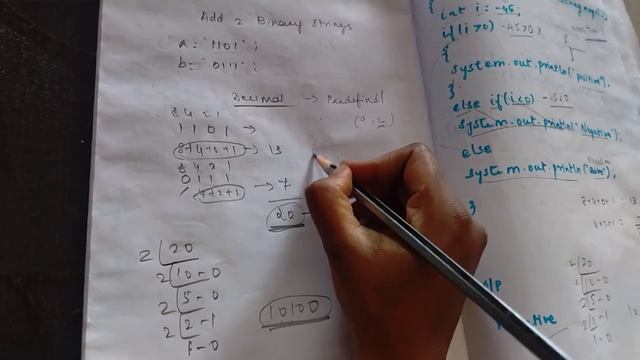 Add 2 Binary Strings
a = "1101" ;
b = "0111" ;
Decimal → Predefined
(0, 2)
8 4 2 1
1 1 0 1 →
8+4+0+1 → 13
8 4 2 1
0 1 1 1
4+2+1 → 7
20
2 20
2 10-0
2 5-0
2 2-1
1-0
10100
{
int i = -45;
if(i>0) -45>0
{
system.out.println("positive");
}
else if(i<0) -45<0
system.out.println("Negative");
else
system.out.println("Zero");
}
8+4+0+1 = 13
4+2+1 = 7
2 20
2 10-0
2 5-0
2 2-1
1-0